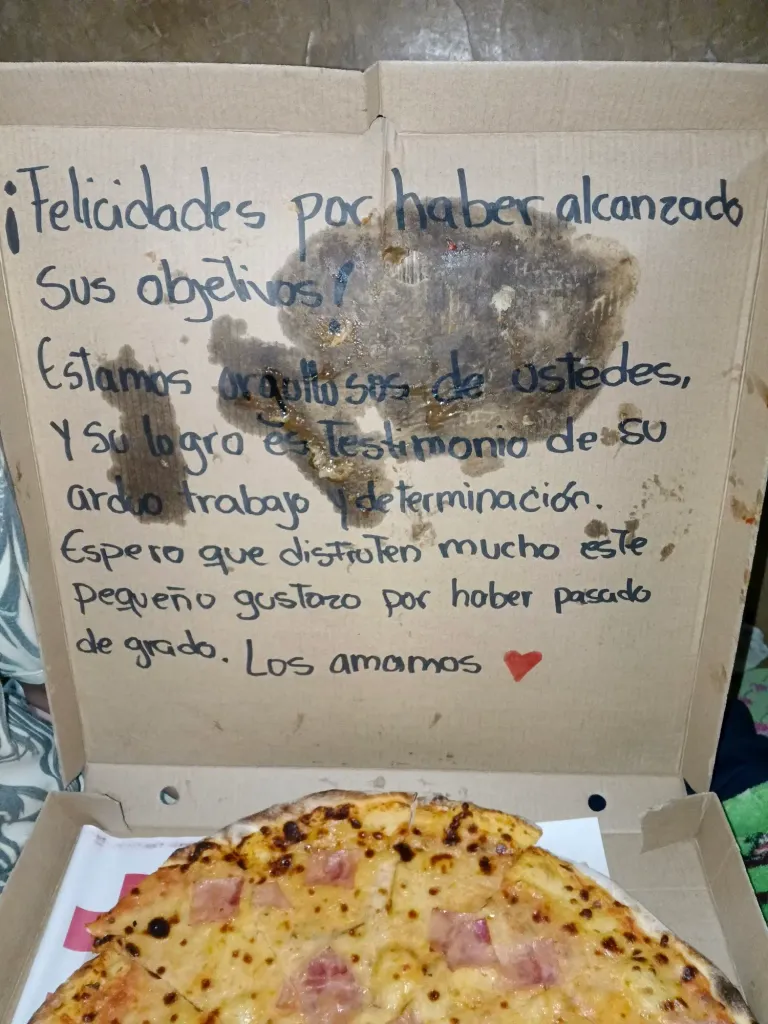 ¡Felicidades por haber alcanzado
sus objetivos!
Estamos orgullosos de ustedes,
y su logro es testimonio de su
arduo trabajo y determinación.
Espero que disfruten mucho este
pequeño gustazo por haber pasado
de grado. Los amamos ❤